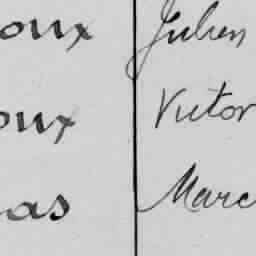 oux Julien
oux Victor
as Marc